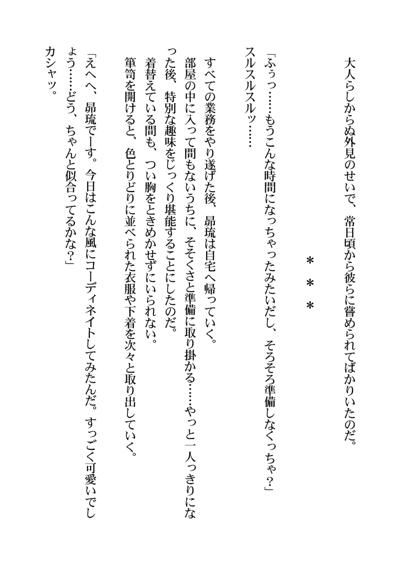 大人らしからぬ外見のせいで、常日頃から彼らに嘗められてばかりいたのだ。
＊　＊　＊
「ふぅっ……もうこんな時間になっちゃったみたいだし、そろそろ準備しなくっちゃ？」
スルスルスルッ……
すべての業務をやり遂げた後、昴琉は自宅へ帰っていく。
部屋の中に入って間もないうちに、そそくさと準備に取り掛かる……やっと一人っきりにな
った後、特別な趣味をじっくり堪能することにしたのだ。
着替えている間も、つい胸をときめかせずにいられない。
箪笥を開けると、色とりどりに並べられた衣服や下着を次々と取り出していく。
「えへへ、昴琉でーす。今日はこんな風にコーディネイトしてみたんだ。すっごく可愛いでし
ょう……どう、ちゃんと似合ってるかな？」
カシャッ。